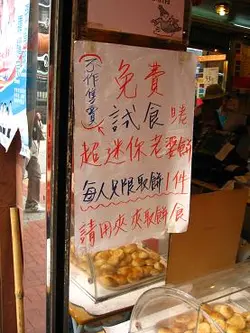 (不作售賣)
免費
試食
超迷你老婆餅
每人只限取餅1件
請用夾夾取餅食